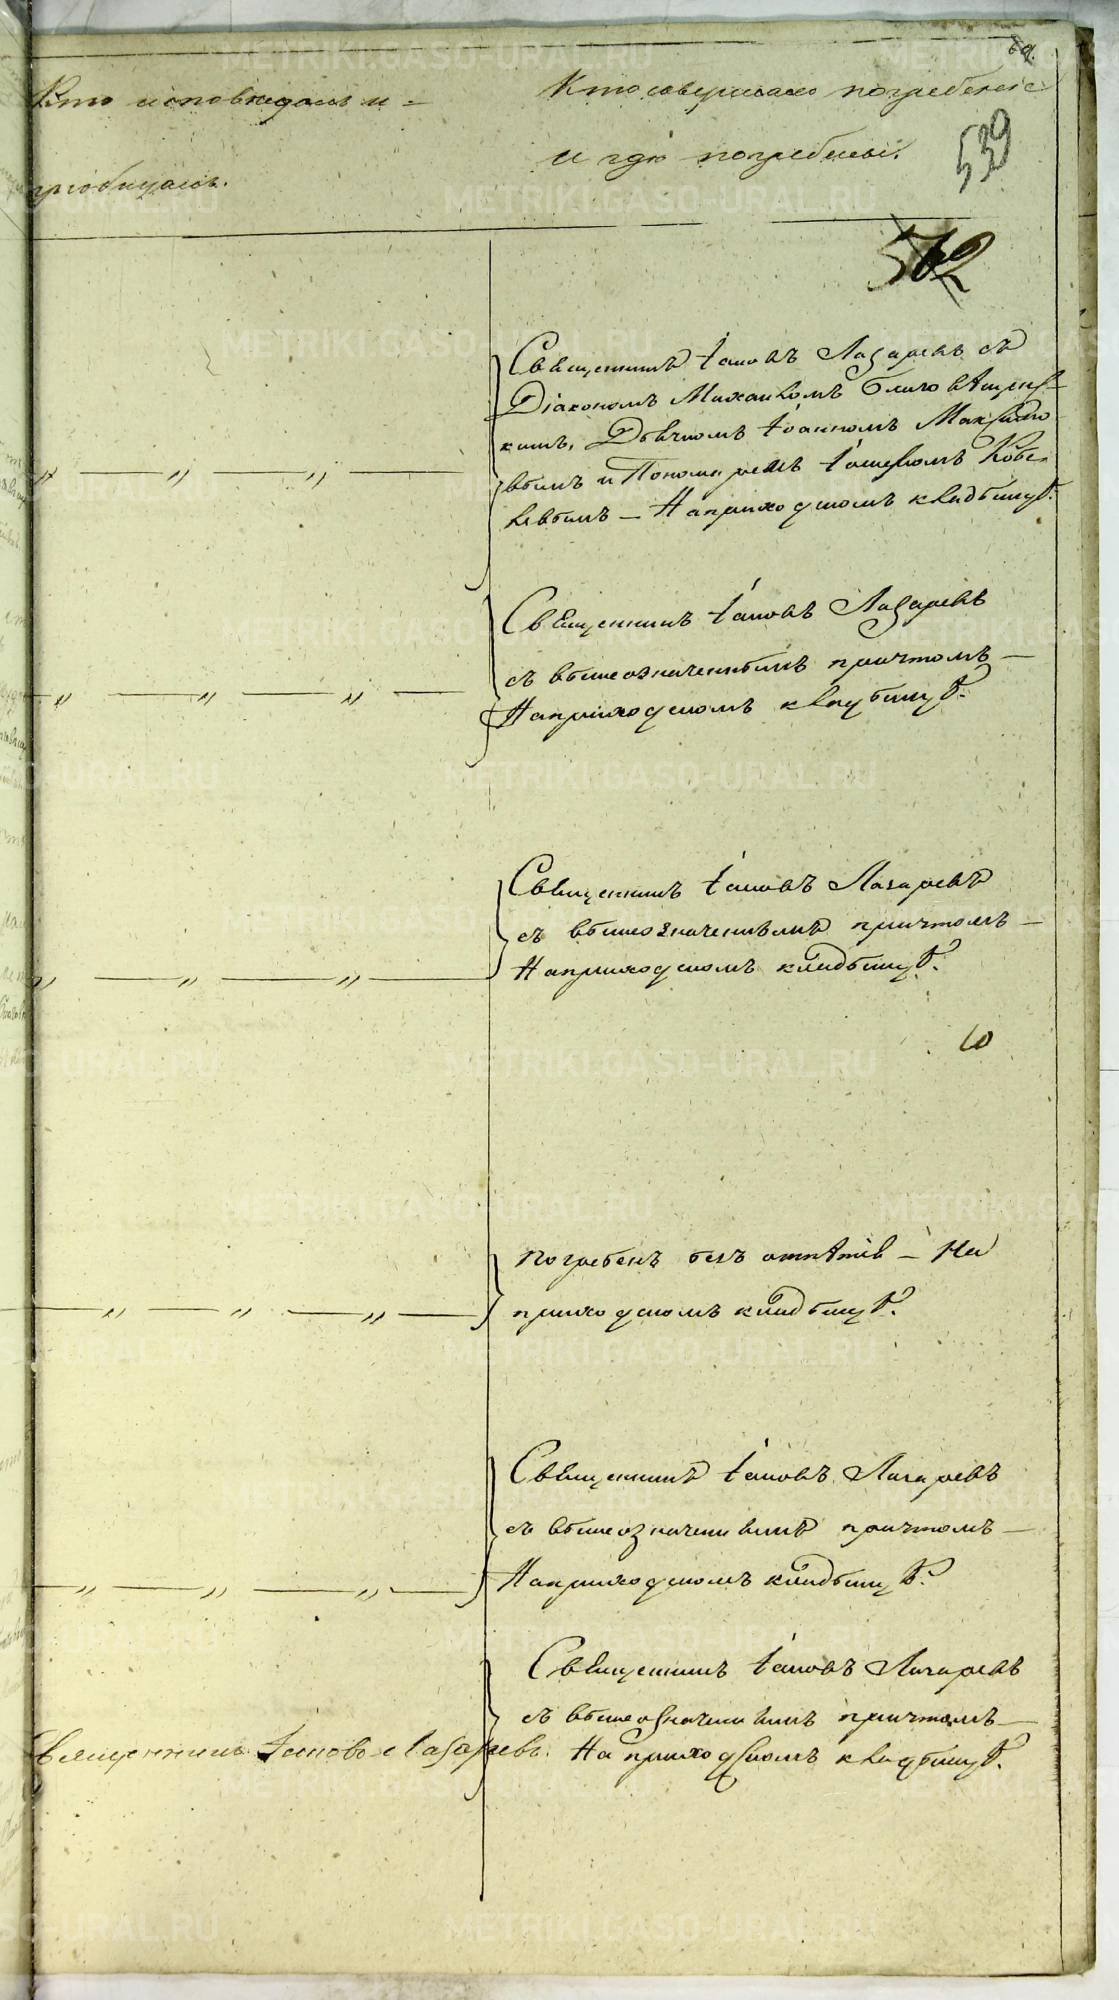 69.
Кто исповѣдалъ и =
пріобщалъ.
Кто совершалъ погребеніе
и гдѣ погребены.
539
562
Священникъ Іаковъ Лазаревъ съ
Діакономъ Михаиломъ Благовѣщенс-
кимъ, Дьячкомъ Іоанномъ Максимо
вымъ и Пономаремъ
вымъ — На приходскомъ кладбищѣ.
Священникъ Іаковъ Лазаревъ
съ вышеозначеннымъ причтомъ —
На приходскомъ кладбищѣ.
Священникъ Іаковъ Лазаревъ
съ вышеозначеннымъ причтомъ —
На приходскомъ кладбищѣ.
10
Погребенъ безъ отпѣтія — На
приходскомъ кладбищѣ.
Священникъ Іаковъ Лазаревъ
съ вышеозначеннымъ причтомъ —
На приходскомъ кладбищѣ.
Священникъ Іаковъ Лазаревъ
съ вышеозначеннымъ причтомъ —
Священникъ Іаковъ Лазаревъ. На приходскомъ кладбищѣ.
METRIKI.GASO-URAL.RU